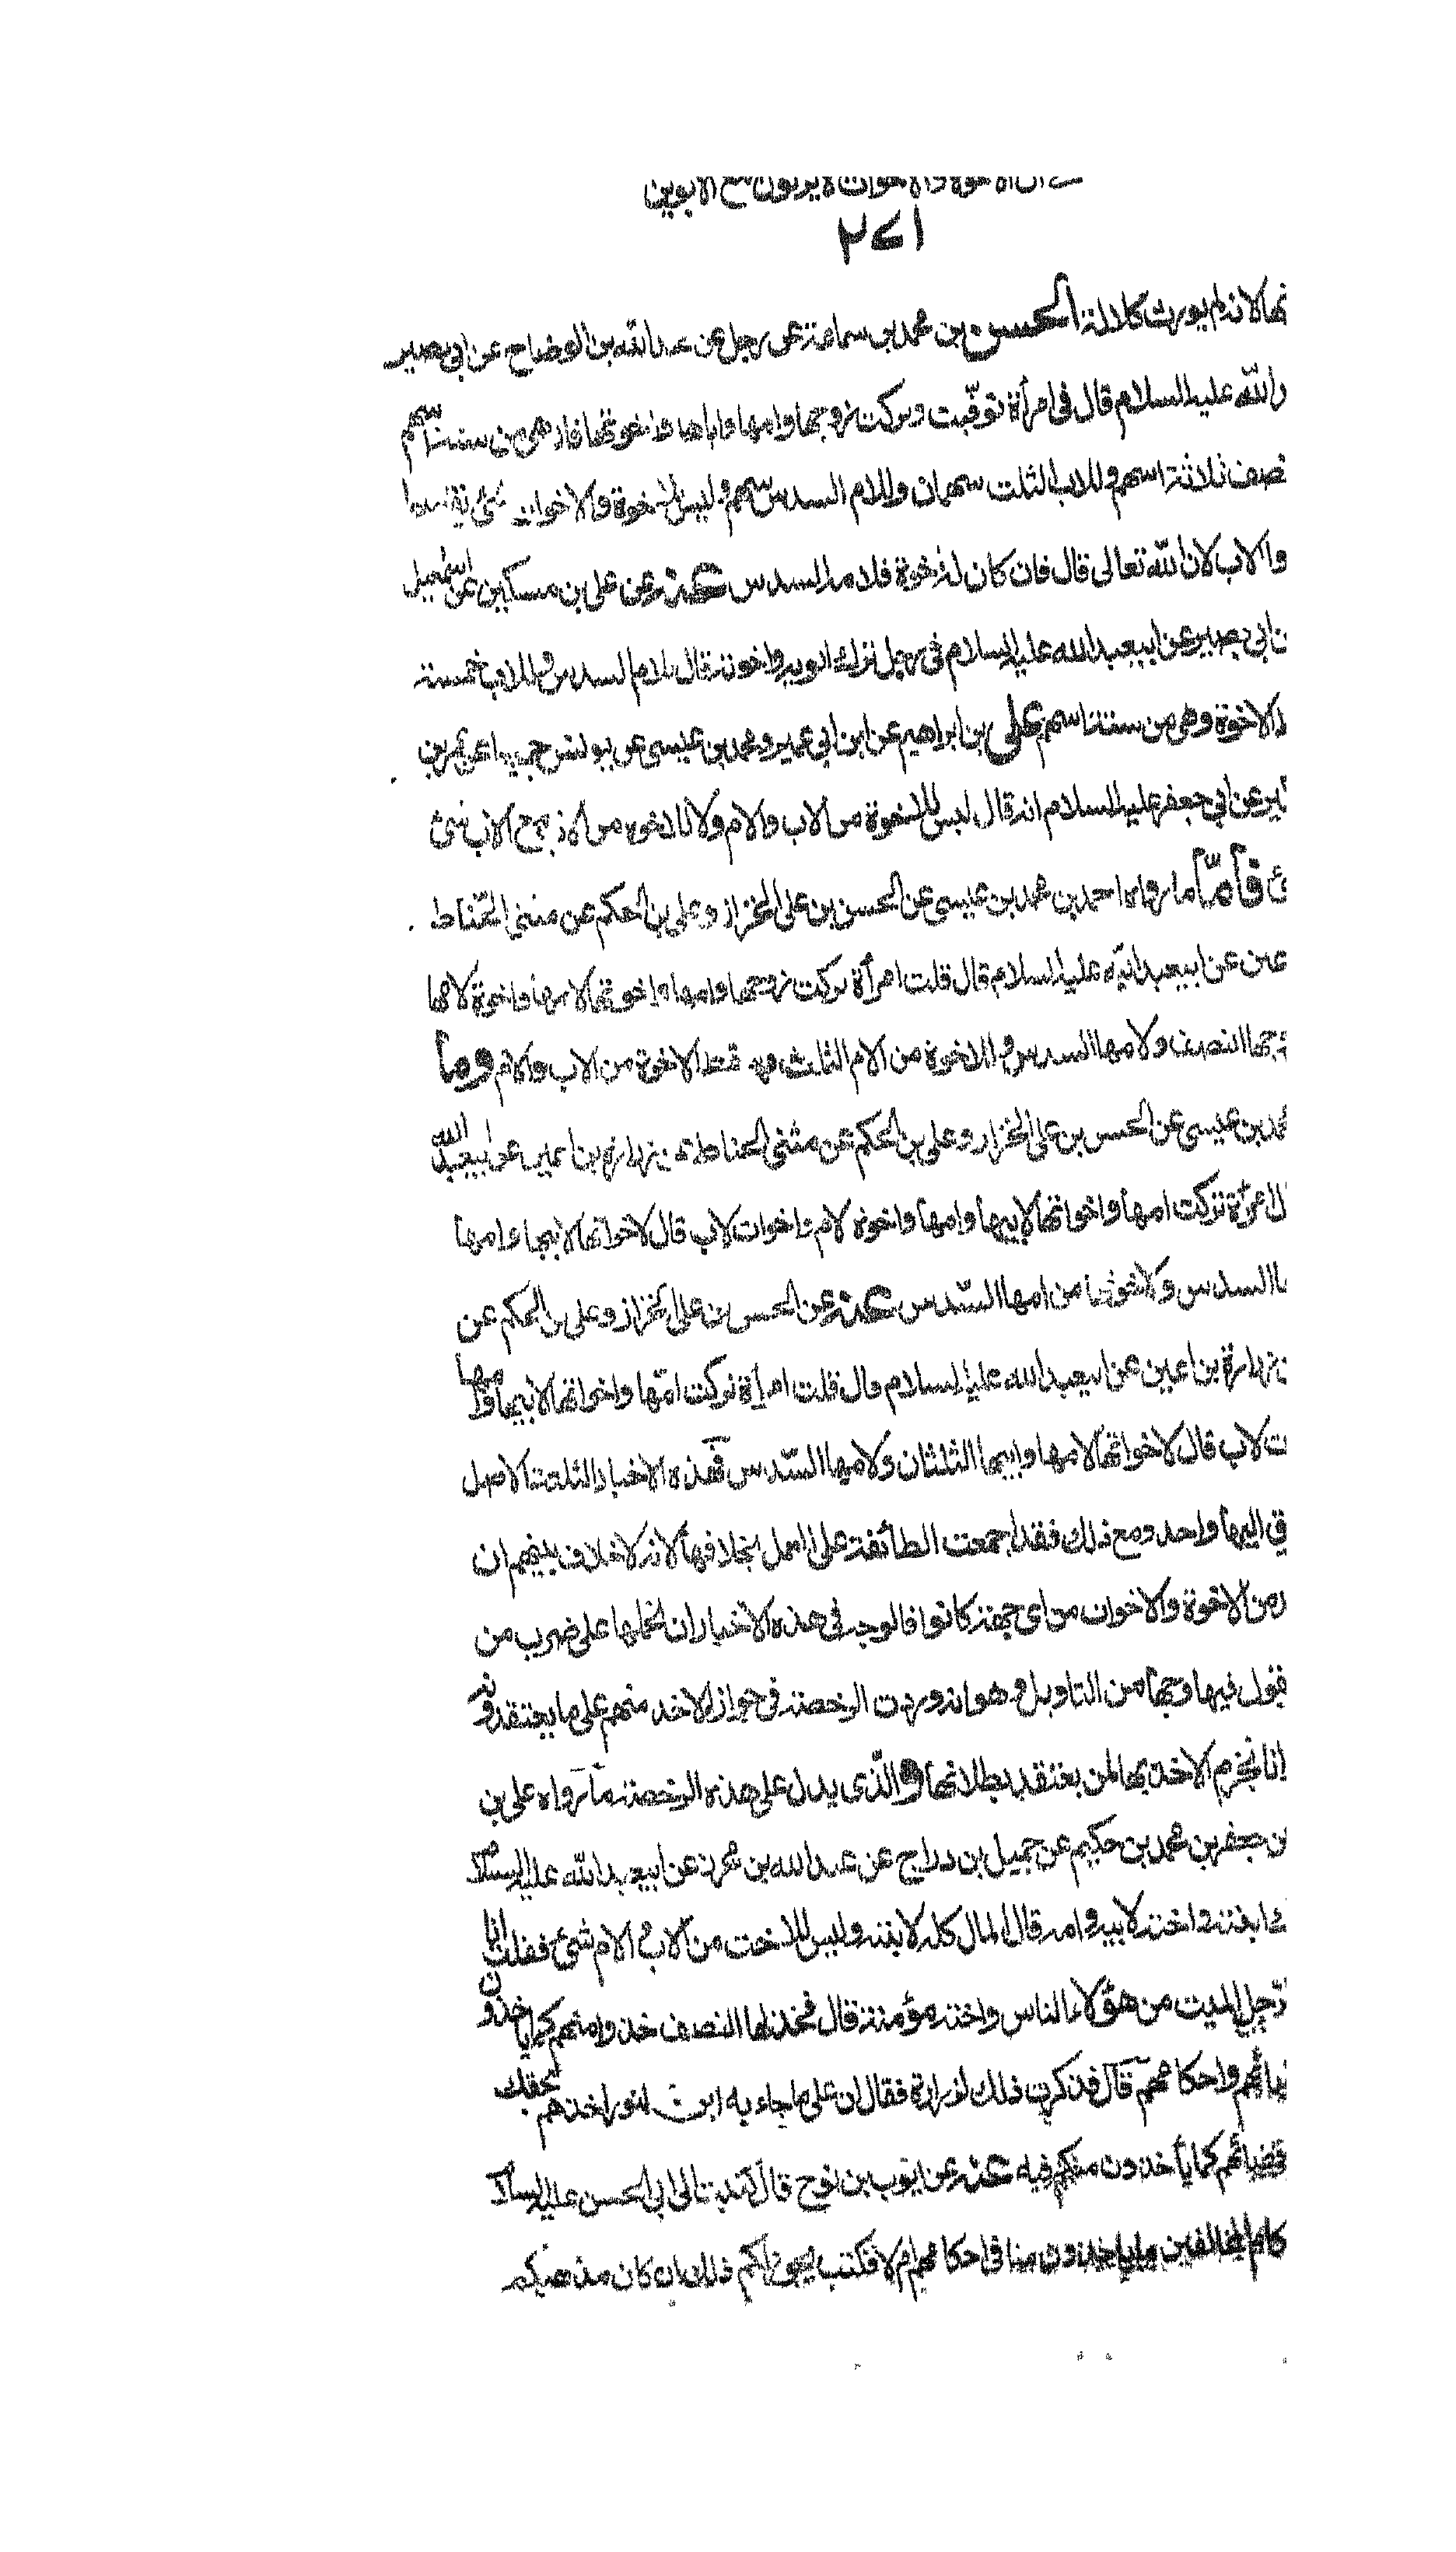 في ان الاخوة والاخوات لا يرثون مع الابوين
٢٧١
ثها لانه لم يورث كلالة الحسن بن محمد بن سماعة عن رجل عن عبد الله بن الوضاح عن ابي بصير
د الله عليه السلام قال في امرأة توفيت وتركت زوجها وامها واباها واخوتها قال هي من ستة اسهم
نصف ثلاثة اسهم وللاب الثلث سهمان وللام السدس سهم وليس للاخوة والاخوات شئ نقصوا
والاب لان الله تعالى قال فان كان له اخوة فلامه السدس عنه عن علي بن مسكين عن اسمعيل
ن ابي بصير عن ابيعبد الله عليه السلام في رجل ترك ابويه واخوته قال للام السدس وللاب خمسة
الاخوة وهي من ستة اسهم علي بن ابراهيم عن ابن ابي عمير ومحمد بن عيسى عن يونس جميعا عن عمر بن
عن ابي جعفر عليه السلام انه قال ليس للاخوة من الاب والام ولا الاخوة من الام مع الاب شئ
ئ فأمّا ما رواه احمد بن محمد بن عيسى عن الحسن بن علي الخزاز وعلي بن الحكم عن مثنى الحناط
عين عن ابيعبد الله عليه السلام قال قلت امرأة تركت زوجها وامها واخوتها لامها واخوة لابيها
وجها النصف ولامها السدس وللاخوة من الام الثلث وسقط الاخوة من الاب والام وما
حمد بن عيسى عن الحسن بن علي الخزاز وعلي بن الحكم عن مثنى الحناط عن زرارة بن اعين عن ابيعبد الله
ال امرأة تركت امها واخواتها لابيها وامها واخوة لام واخوات لاب قال لاخواتها لابيها وامها
ها السدس ولاخوتها من امها السدس عنه عن الحسن بن علي الخزاز وعلي بن الحكم عن
ن زرارة بن اعين عن ابيعبد الله عليه السلام قال قلت امرأة تركت امها واخواتها لابيها وامها
ت لاب قال لاخواتها لامها وابيها الثلثان ولامها السدس فهذه الاخبار الثلثة الاصل
ق اليها واحد ومع ذلك فقد اجمعت الطائفة على العمل بخلافها لانه لا خلاف بينهم ان
من الاخوة والاخوات من اى جهة كانوا فالوجه في هذه الاخبار ان نحملها على ضرب من
نقول فيها وجها من التاويل وهو انه وردت الرخصة في جواز الاخذ منهم على ما يعتقدونه
انا نحرم الاخذ بها لمن يعتقد بطلانها والّذى يدل على هذه الرخصة ما رواه علي بن
ن جعفر بن محمد بن حكيم عن جميل بن دراج عن عبد الله بن محرز عن ابيعبد الله عليه السلام
ك ابنته واخته لابيه وامه قال المال كله لابنته وليس للاخت من الاب والام شئ فقلت انا
رّجل الميت من هؤلاء الناس واخته مؤمنة قال فخذ لها النصف خذوا منهم كما ياخذون
يائهم واحكامهم قال فذكرت ذلك لزرارة فقال ان على ما جاء به ابن محرز لنورا خذهم بحقك
قضيائهم كما يأخذون منكم فيه عنه عن ايوب بن نوح قال كتبت الى ابي الحسن عليه السلام
كام المخالفين ما ياخذون منا في احكامهم ام لا فكتب يجوز لكم ذلك ان كان مذهبكم